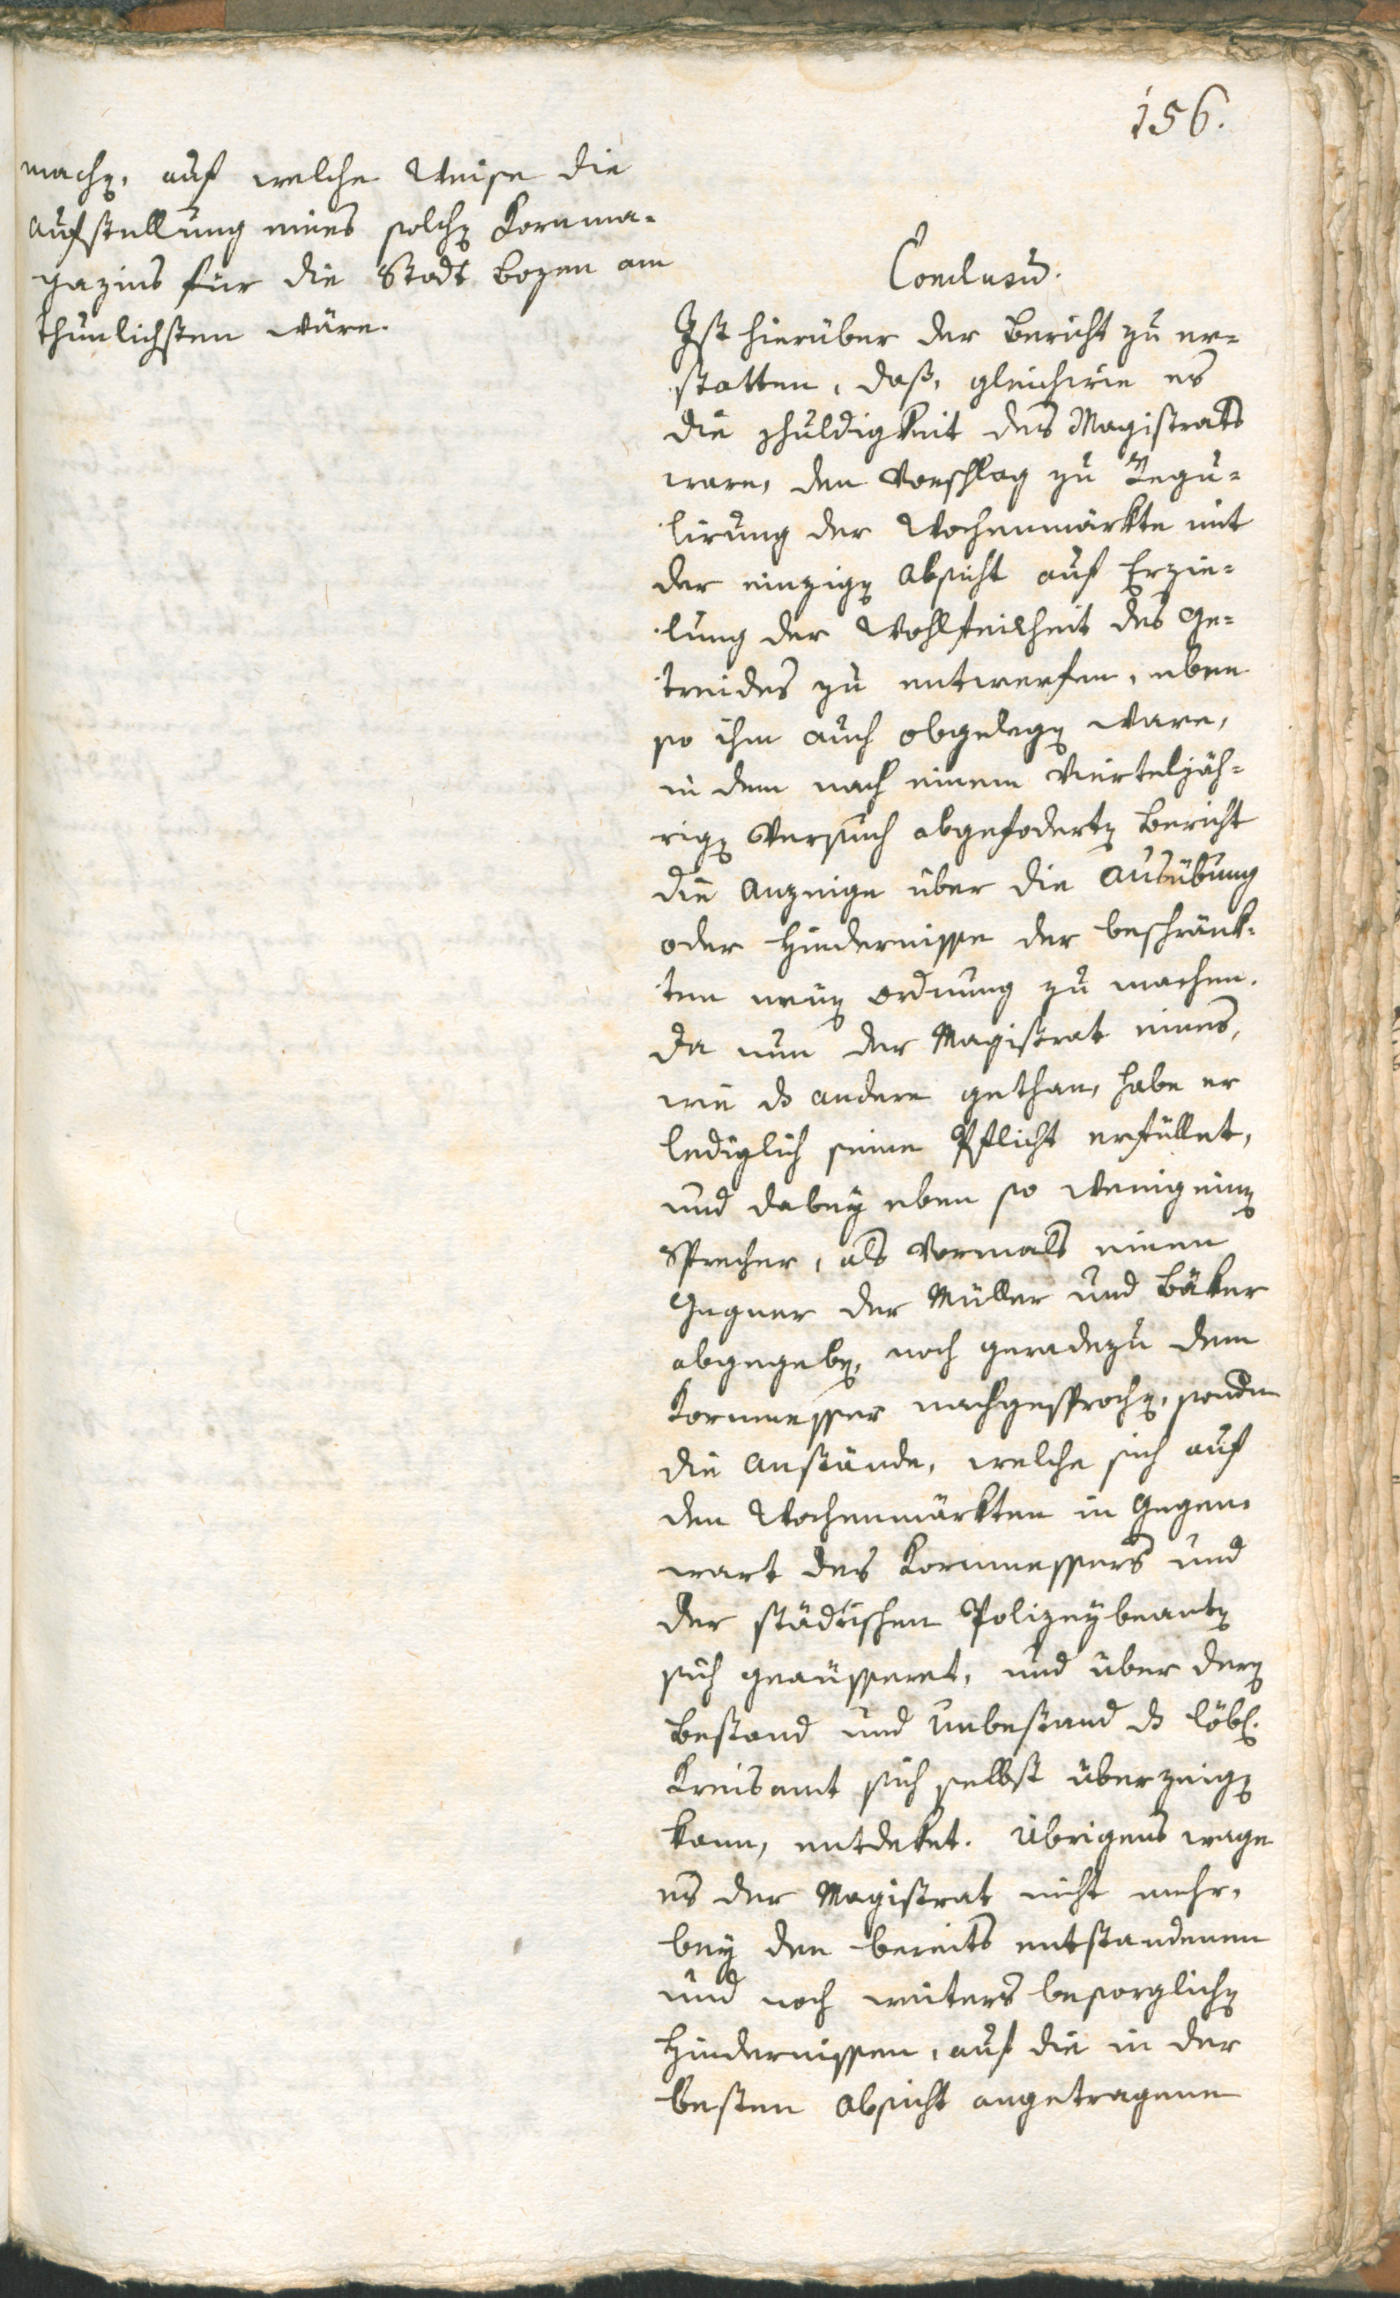 156.
mach[en], auf welche Weise die
Aufstellung eines solch[en] Kornma-
gazins für die Stadt Bozen am
thunlichsten wäre.
Conclusū.
Ist hierüber der Bericht zu er-
statten, daß, gleichwie es
die schuldigkeit des Magistrats
ware, den Vorschlag zu Regu-
lirung der Wochenmärkte mit
der einzig[en] Absicht auf Erzie-
lung der Wohlfeilheit des Ge-
treides zu entwerfen, eben
so ihm auch obgeleg[en] ware,
in dem nach einem vierteljäh-
rig[en] Versuch abgefodert[en] Bericht
die Anzeige über die Ausübung
oder Hindernisse der beschränk-
ten neu[en] Ordnung zu machen.
Da nun der Magistrat eines,
wie ds andere gethan, habe er
lediglich seine Pflicht erfüllet,
und dabey eben so wenig ein[en]
Sprecher, als vormals einen
Gegner der Müller und Bäker
abgegeb[en], noch geradezu dem
Kornmesser nachgesproch[en], sondern
die Anstände, welche sich auf
den Wochenmärkten in Gegen-
wart des Kornmessers und
der städtischen Polizeybeamt[en]
sich geäusseret, und über der[en]
Bestand und Unbestand ds löbl.
Kreisamt sich selbst überzeig[en]
kann, entdeket. Übrigens wage
es der Magistrat nicht mehr,
bey den bereits entstandenen
und noch weiters besorglich[en]
Hindernissen, auf die in der
besten Absicht angetragene